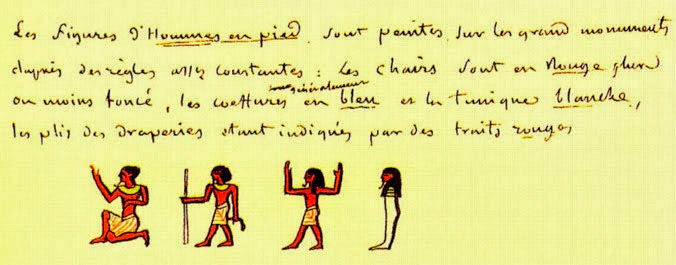 Les figures d'Hommes en pied, sont peintes, sur les grand monuments
d'après des règles assez constantes : Les chairs sont en Rouge plus
ou moins foncé, les coeffures généralement en bleu et la tunique blanche,
les plis des draperies étant indiqués par des traits rouges